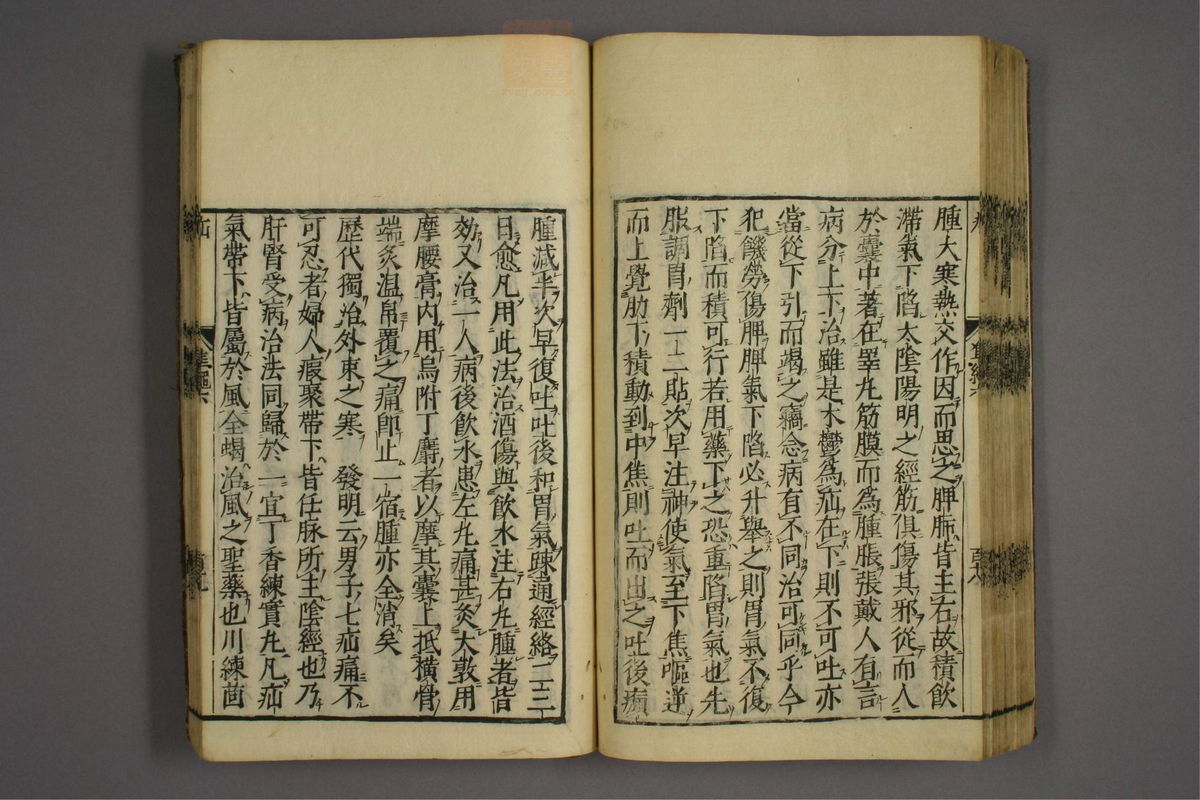 腫大寒熱交作因而思之脾肺皆主右故積飲
滞氣下陷太陰陽明之經筋俱傷其邪從而入
於囊中著在睪丸筋膜而為腫脹張戴人有言
病分上下治雖是木鬱為疝在下則不可吐亦
當從下引而竭之竊念病有不同治可同乎今
犯饑勞傷脾脾氣下陷必升舉之則胃氣不復
下陷而積可行若用藥下之恐重陷胃氣也先
服調胃劑一二貼次早注神使氣至下焦嘔逆
而上覺肋下積動到中焦則吐而出之吐後癩
腫減半次早復吐吐後和胃氣疎通經絡二三
日愈凡用此法治酒傷與飲水注右丸腫者皆
效又治一人病後飲水患左丸痛甚灸大敦用
摩腰膏內用烏附丁麝者以摩其囊上抵橫骨
端灸温帛覆之痛即止一宿腫亦全消矣
歷代獨治外束之寒 發明云男子七疝痛不
可忍者婦人瘕聚帶下皆任脉所主陰經也乃
肝腎受病治法同歸於一宜丁香練實丸凡疝
氣帶下皆屬於風全蝎治風之聖藥也川練茴
疝